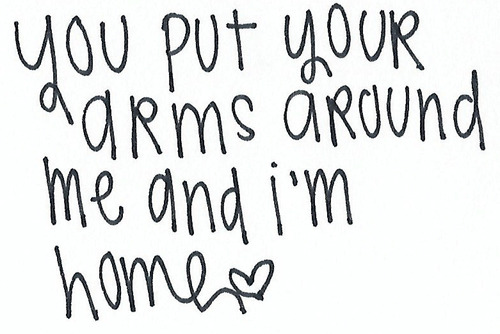 you put your
arms around
me and i'm
home♡